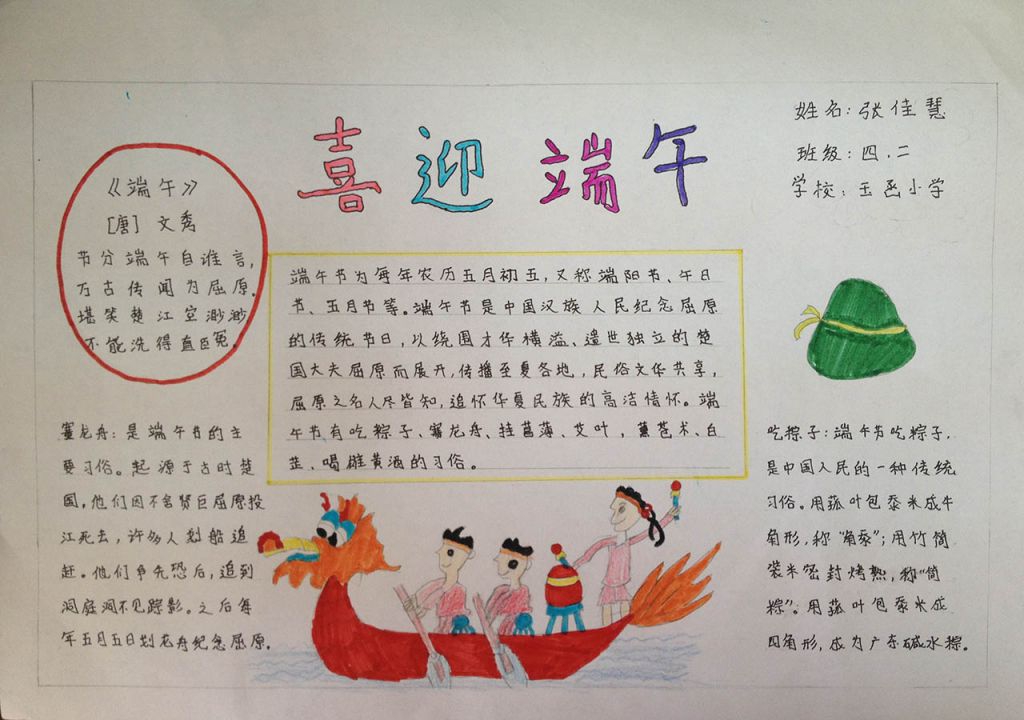 喜迎端午
姓名：张佳慧
班级：四．二
学校：玉函小学
《端午》
[唐] 文秀
节分端午自谁言，
万古传闻为屈原。
堪笑楚江空渺渺
不能洗得直臣冤。
端午节为每年农历五月初五，又称端阳节、午日
节、五月节等。端午节是中国汉族人民纪念屈原
的传统节日，以绕围才华横溢、遗世独立的楚
国大夫屈原而展开，传播至夏各地，民俗文华共享，
屈原之名人尽皆知，追怀华夏民族的高洁情怀。端
午节有吃粽子、赛龙舟、挂菖蒲、艾叶，薰苍术、白
芷、喝雄黄酒的习俗。
赛龙舟：是端午节的主
要习俗。起源于古时楚
国，他们因不舍贤臣屈原投
江死去，许多人划船追
赶。他们争先恐后，追到
洞庭洞不见踪影。之后每
年五月五日划龙舟纪念屈原．
吃粽子：端午节吃粽子，
是中国人民的一种传统
习俗。用菰叶包黍米成牛
角形，称“角黍”；用竹筒
装米密封烤熟，称“筒
粽”。用菰叶包黍米成
四角形，成为广东碱水粽。